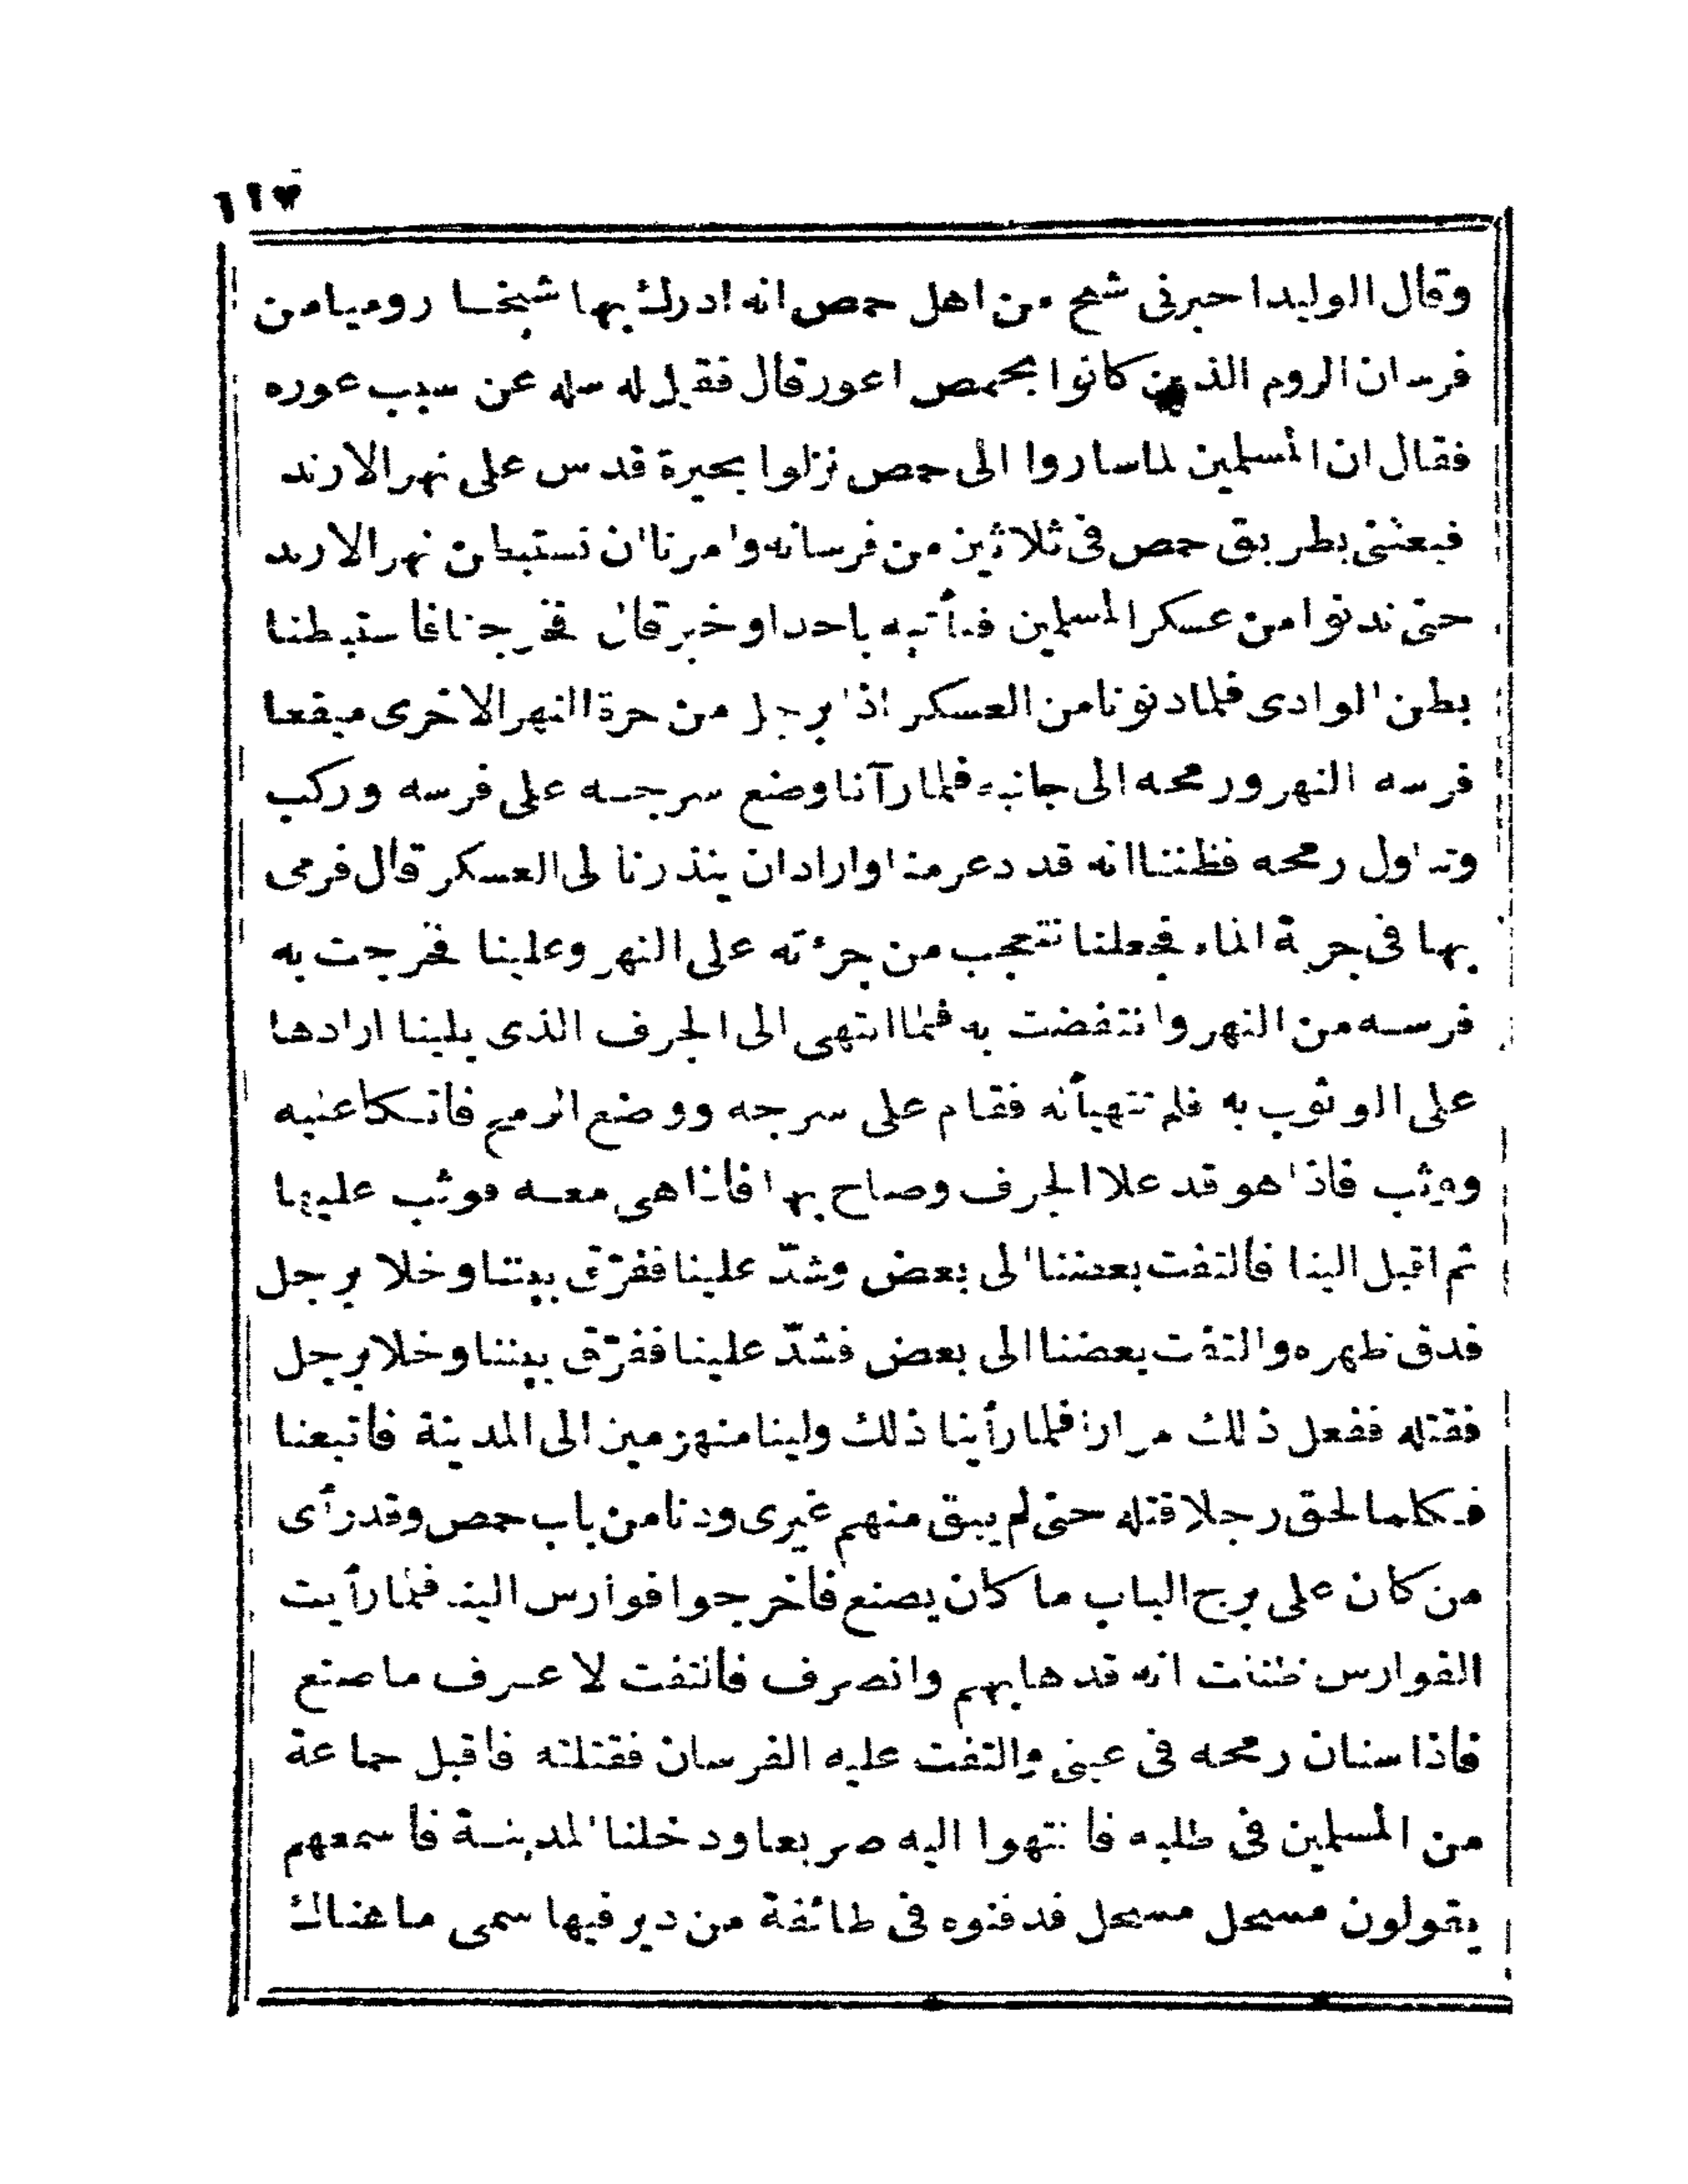 ١١٧
وقال الوليد اخبرنى شيخ من اهل حمص انه ادرك بها شيخا روميا من
فرسان الروم الذين كانوا بحمص اعور قال فقيل له سله عن سبب عوره
فقال ان المسلمين لما ساروا الى حمص نزلوا بحيرة قدس على نهر الارند
فبعثنى بطريق حمص فى ثلاثين من فرسانه وامرنا ان نستبطن نهر الارند
حتى ندنوا من عسكر المسلمين فنأتيه باحد او خبر قال فخرجنا فاستبطنا
بطن الوادى فلما دنونا من العسكر اذا برجل من حرة النهر الاخرى ميقعا
فرسه النهر ورمحه الى جانبه فلما رآنا وضع سرجه على فرسه وركب
وتناول رمحه فظننا انه قد دعر منا وارادان ينذرنا لى العسكر قال فرمى
بها فى جرية الماء فجعلنا نتعجب من جرءته على النهر وعلينا فخرجت به
فرسه من النهر وانتفضت به فلما انتهى الى الجرف الذى يلينا ارادها
على الوثوب به فلم تتهيأ له فقام على سرجه ووضع الرمح فاتكا عليه
ووثب فاذا هو قد علا الجرف وصاح بها فاذا هى معه فوثب عليها
ثم اقبل الينا فالتفت بعضنا الى بعض وشدّ علينا ففرّق بيننا وخلا برجل
فدق ظهره والتفت بعضنا الى بعض فشدّ علينا ففرّق بيننا وخلا برجل
فقتله ففعل ذلك مرارا فلما رأينا ذلك ولينا منهزمين الى المدينة فاتبعنا
فكلما لحق رجلا قتله حتى لم يبق منهم غيرى ودنا من باب حمص وقد رأى
من كان على برج الباب ما كان يصنع فاخرجوا فوارس الينا فلما رأيت
الفوارس ظننت انه قد هابهم وانصرف فالتفت لا عرف ما صنع
فاذا سنان رمحه فى عينى والتفت عليه الفرسان فقتلته فاقبل جماعة
من المسلمين فى طلبه فا نتهوا اليه صريعا ودخلنا المدينة فاسمعهم
يقولون مسحل مسحل فدفنوه فى طائفة من دير فيها سمى ما هناك